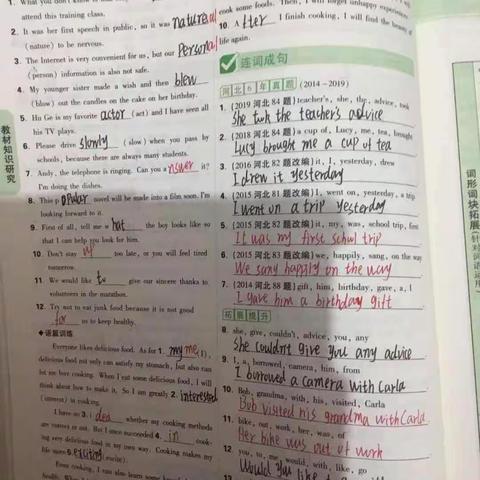 attend this training class.
2. It was her first speech in public, so it was natureal
(nature) to be nervous.
3. The Internet is very convenient for us, but our Personal
(person) information is also not safe.
4. My younger sister made a wish and then blew
(blow) out the candles on the cake on her birthday.
5. Hu Ge is my favorite actor (act) and I have seen all
his TV plays.
6. Please drive slowly (slow) when you pass by
schools, because there are always many students.
7. Andy, the telephone is ringing. Can you answer it?
I'm doing the dishes.
8. This popular novel will be made into a film soon. I'm
looking forward to it.
9. First of all, tell me hat the boy looks like so
that I can help you look for him.
10. Don't stay up too late, or you will feel tired
tomorrow.
11. We would like to give our sincere thanks to
volunteers in the marathon.
12. Try not to eat junk food because it is not good
for us to keep healthy.
◆语篇训练
Everyone likes delicious food. As for 1. my me (I),
delicious food not only can satisfy my stomach, but also can
let me love cooking. When I eat some delicious food, I will
think about how to make it. So I am greatly 2. interested
(interest) in cooking.
I have no 3. idea whether my cooking methods
are correct or not. But I once succeeded 4. in cook-
ing very delicious food in my own way. Cooking makes my
life more 5. exciting (excite).
Even cooking, I can also learn some
教材知识研究
cook some foods. Then, I will forget unhappy experiences
10. After I finish cooking, I will find the beauty of
life again.
连词成句
河北6年真题 (2014-2019)
1. [2019河北84题] teacher's, she, the, advice, took
She tuok the teacher's advice
2. [2018河北84题] a cup of, Lucy, me, tea, brought
Lucy brought me a cup of tea
3. [2016河北82题改编] it, I, yesterday, drew
I drew it yesterday
4. [2015河北81题改编] I, went on, yesterday, a trip
I went on a trip yesterday
5. [2015河北82题改编] it, my, was, school trip, first
It was my first school trip
6. [2015河北83题改编] we, happily, sang, on the way
We sang happily on the way
7. [2014河北88题] gift, him, birthday, gave, a, I
I gave him a birthday gift
拓展提升
8. she, give, couldn't, advice, you, any
She couldn't give you any advice
9. I, a, borrowed, camera, him, from
I borrowed a camera with Carla
10. Bob, grandma, with, his, visited, Carla
Bob visited his grandma with Carla
11. bike, out, work, her, was, of
Her bike was out of work
12. you, to, me, would, with, like, go
Would you like t
词形词块拓展